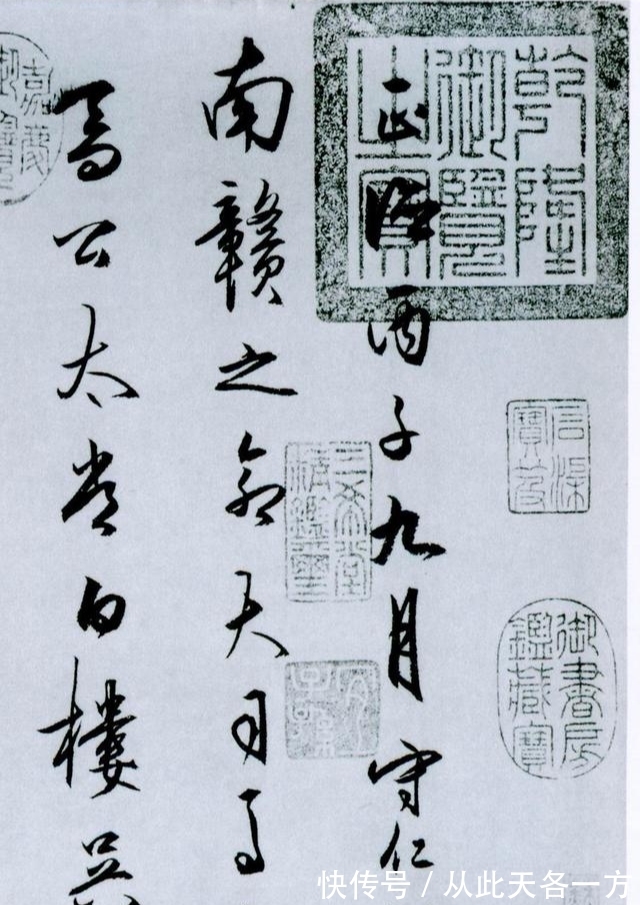 乾隆
御覽
之寶
石渠
寶笈
御書房
鑑藏寶
正德丙子九月守仁
三希堂
精鑑璽
宜
子孫
南贛之命大司馬
喬公太常白樓吳
嘉慶
御覽
快传号 / 从此天各一方